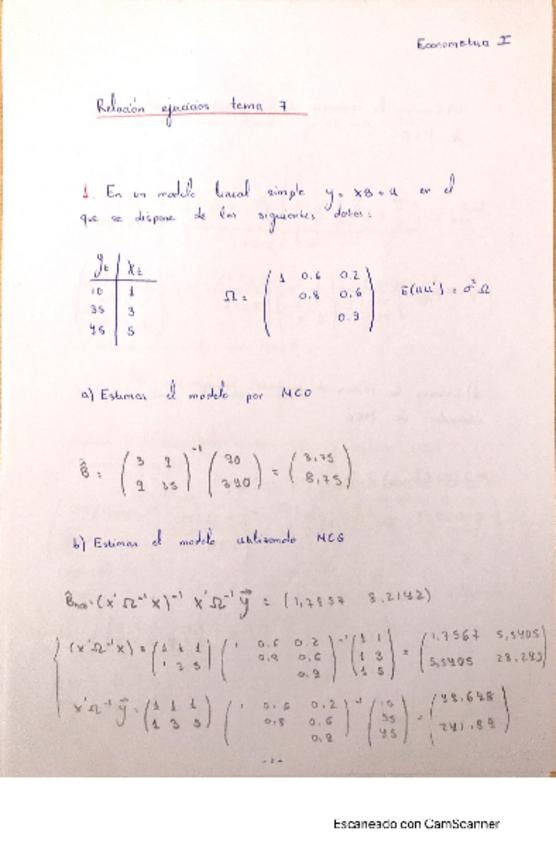 Econometria I
Relación ejercicios tema 7
1. En un modelo lineal simple y = xB + u en el
que se dispone de los siguientes datos:
yt | xt
10 | 1
35 | 3
45 | 5
Ω = ( 1 0.6 0.2
0.8 0.6
0.9 ) E(uu') = σ²Ω
a) Estimar el modelo por MCO
B̂ = ( 3 9
9 35 )⁻¹ ( 90
340 ) = ( 3,75
8,75 )
b) Estimar el modelo utilizando MCG
(x'Ω⁻¹x)⁻¹ x'Ω⁻¹ y⃗ =
(x'Ω⁻¹x) = ( 1 1 1
1 3 5 ) ( 1 0.6 0.2
0.8 0.6
0.9 )⁻¹ ( 1 1
1 3
1 5 ) = ( 1,7567 5,5405
5,5405 28.243 )
x'Ω⁻¹ y⃗ = ( 1 1 1
1 3 5 ) ( 1 0.6 0.2
0.8 0.6
)⁻¹ ( 10
35
45 ) =
Escaneado con CamScanner